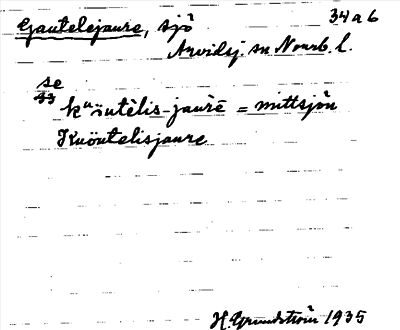 34 a 6
Gautelejaure, sjö
Arvidsj. sn Norrb. l.
se
kᵘöutèlis-jaurē = mittsjön
Kuöutelisjaure
H. Grundström 1935